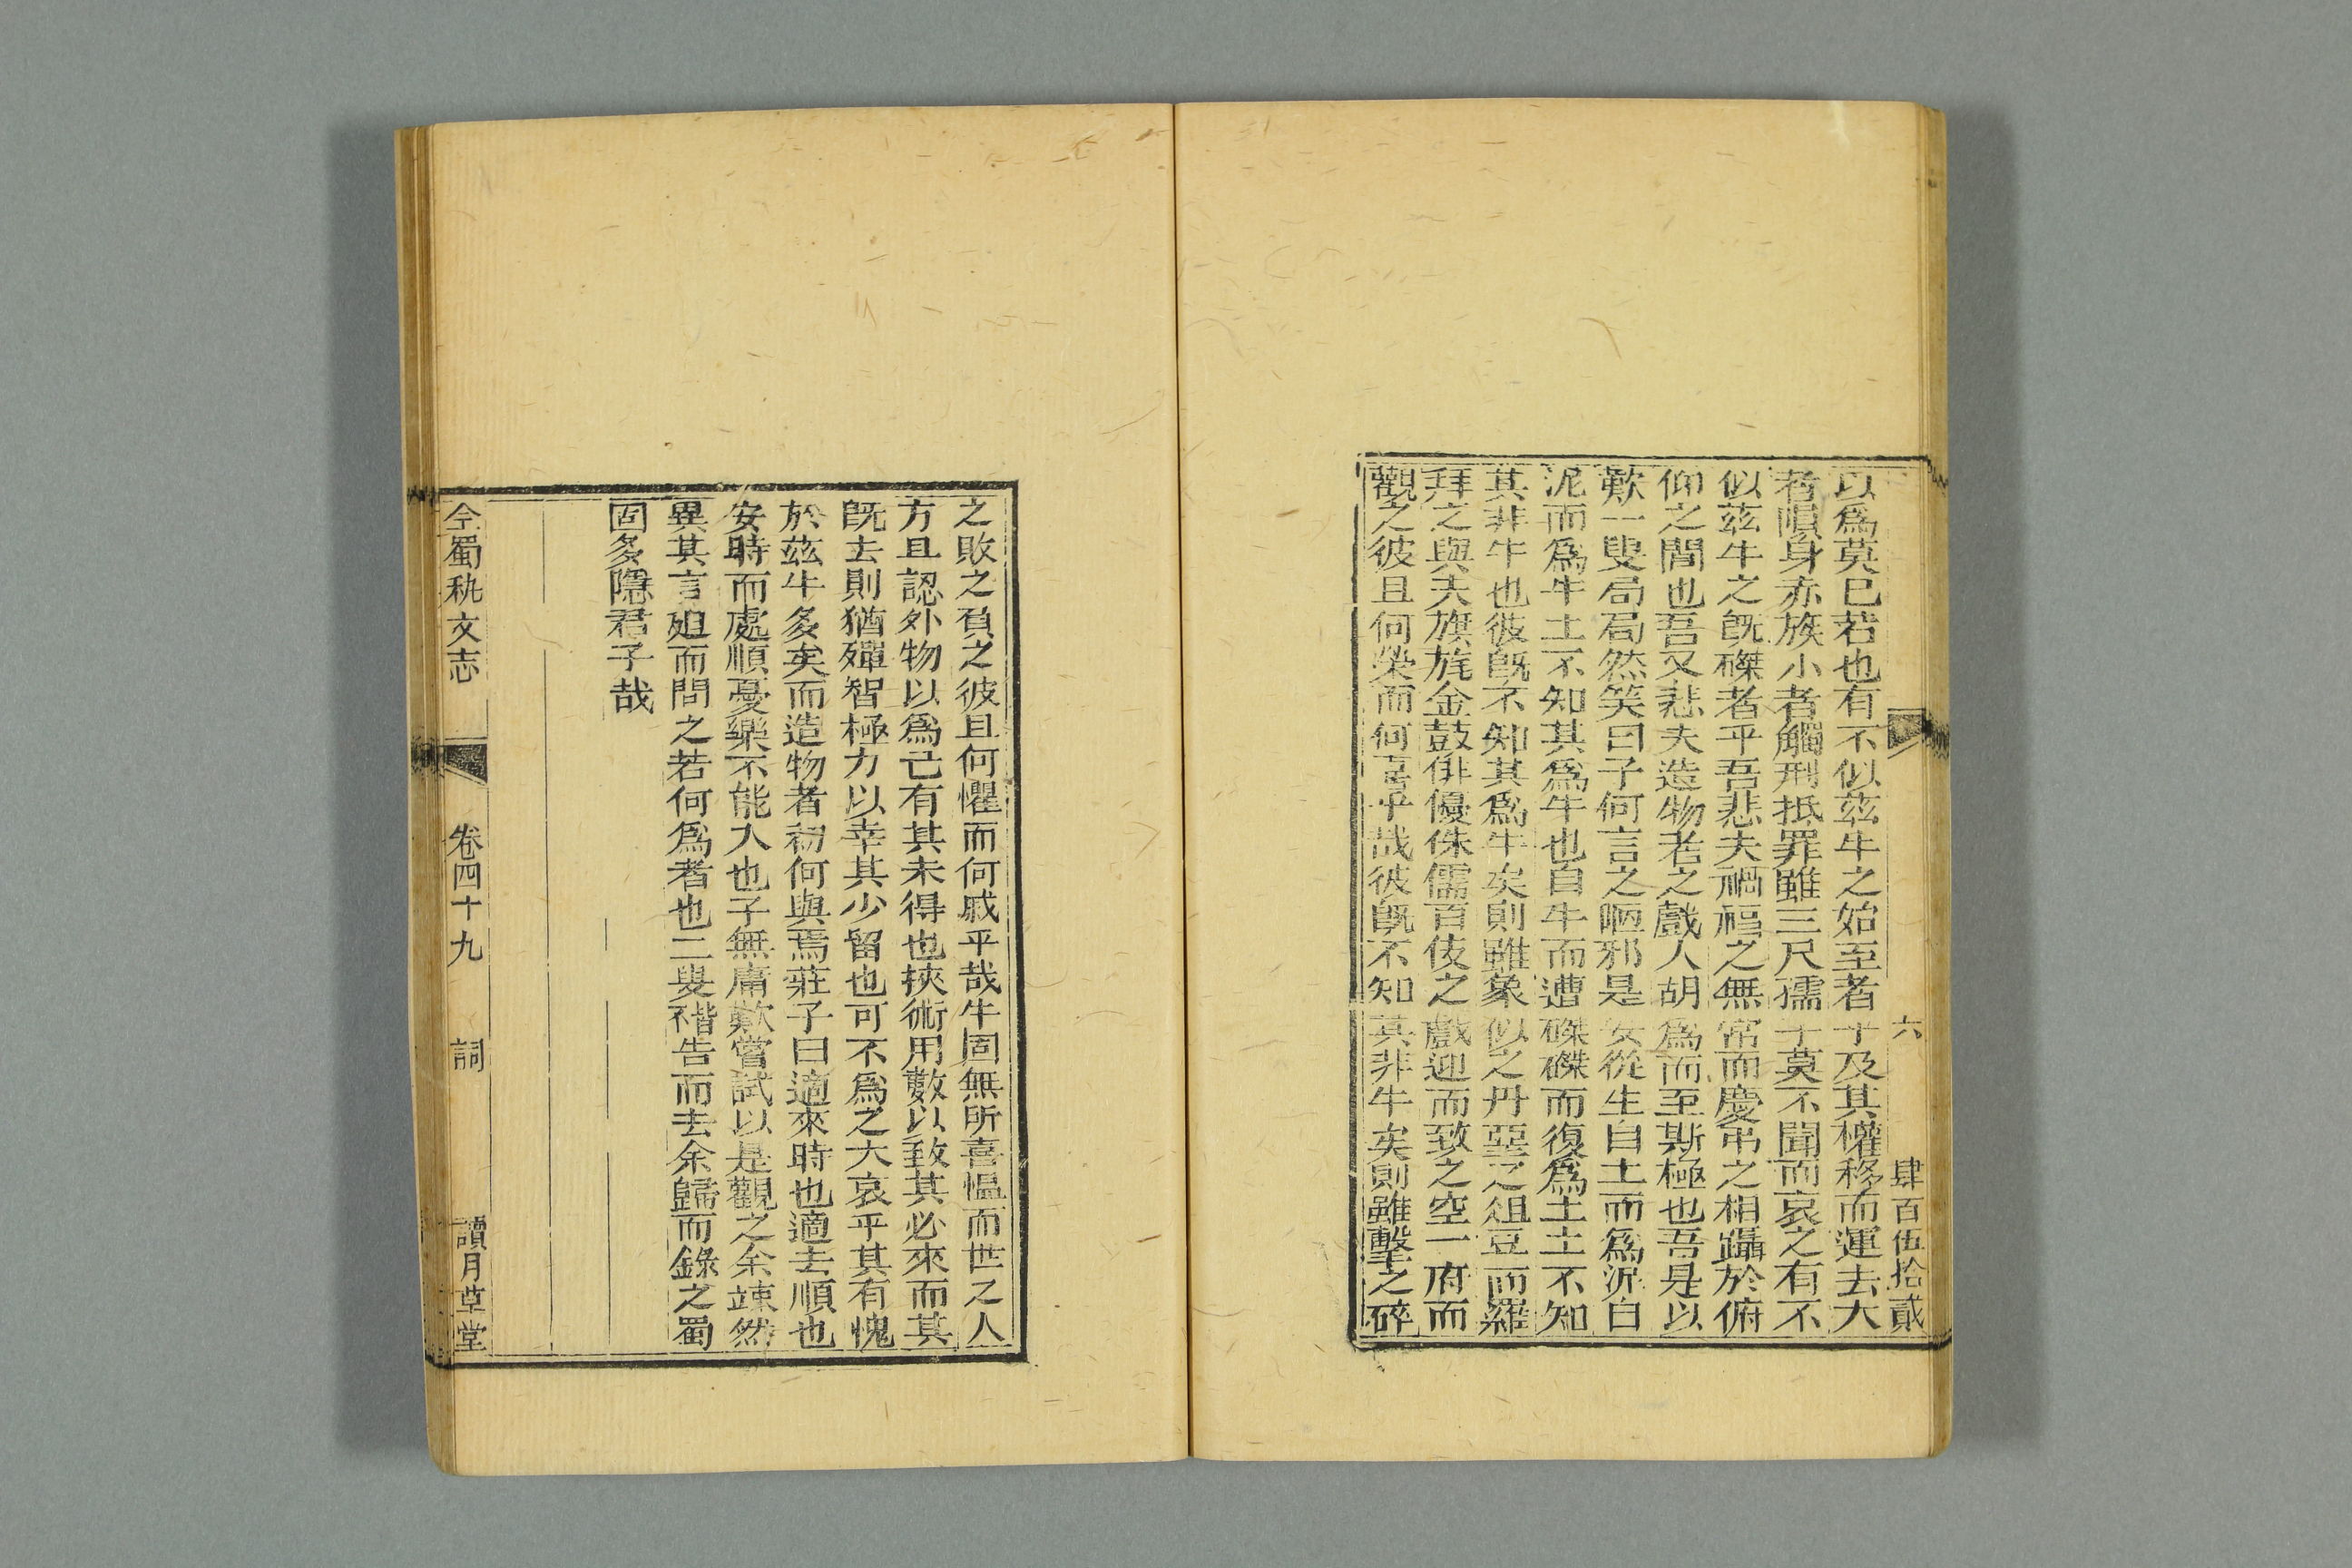 六 肆百伍拾貳
以爲莫巳若也有不似茲牛之始至者乎及其權移而運去大
者嘳身赤族小者觸刑抵罪雖三尺孺子莫不聞而哀之有不
似茲牛之旣磔者乎吾悲夫禍福之無常而慶弔之相躡於俯
仰之閒也吾又悲夫造物者之戲人胡爲而至斯極也吾是以
歎一叟局局然笑曰子何言之陋邪是安從生自土而爲泥自
泥而爲牛土不知其爲牛也自牛而遭磔磔而復爲土土不知
其非牛也彼旣不知其爲牛矣則雖象似之丹堊之俎豆而羅
拜之與夫旗旄金鼓俳優侏儒百伎之戲迎而致之空一府而
觀之彼且何榮而何喜乎哉彼旣不知其非牛矣則雖擊之碎
之敗之負之彼且何懼而何戚乎哉牛固無所喜慍而世之人
方且認外物以爲己有其未得也挾術用數以致其必來而其
旣去則猶殫智極力以幸其少留也可不爲之大哀乎其有愧
於茲牛多矣而造物者初何與焉莊子曰適來時也適去順也
安時而處順憂樂不能入也子無庸歎嘗試以是觀之余竦然
異其言廹而問之若何爲者也二叟褡告而去余歸而錄之蜀
固多隱君子哉
全蜀秇文志 卷四十九 詞 讀月草堂